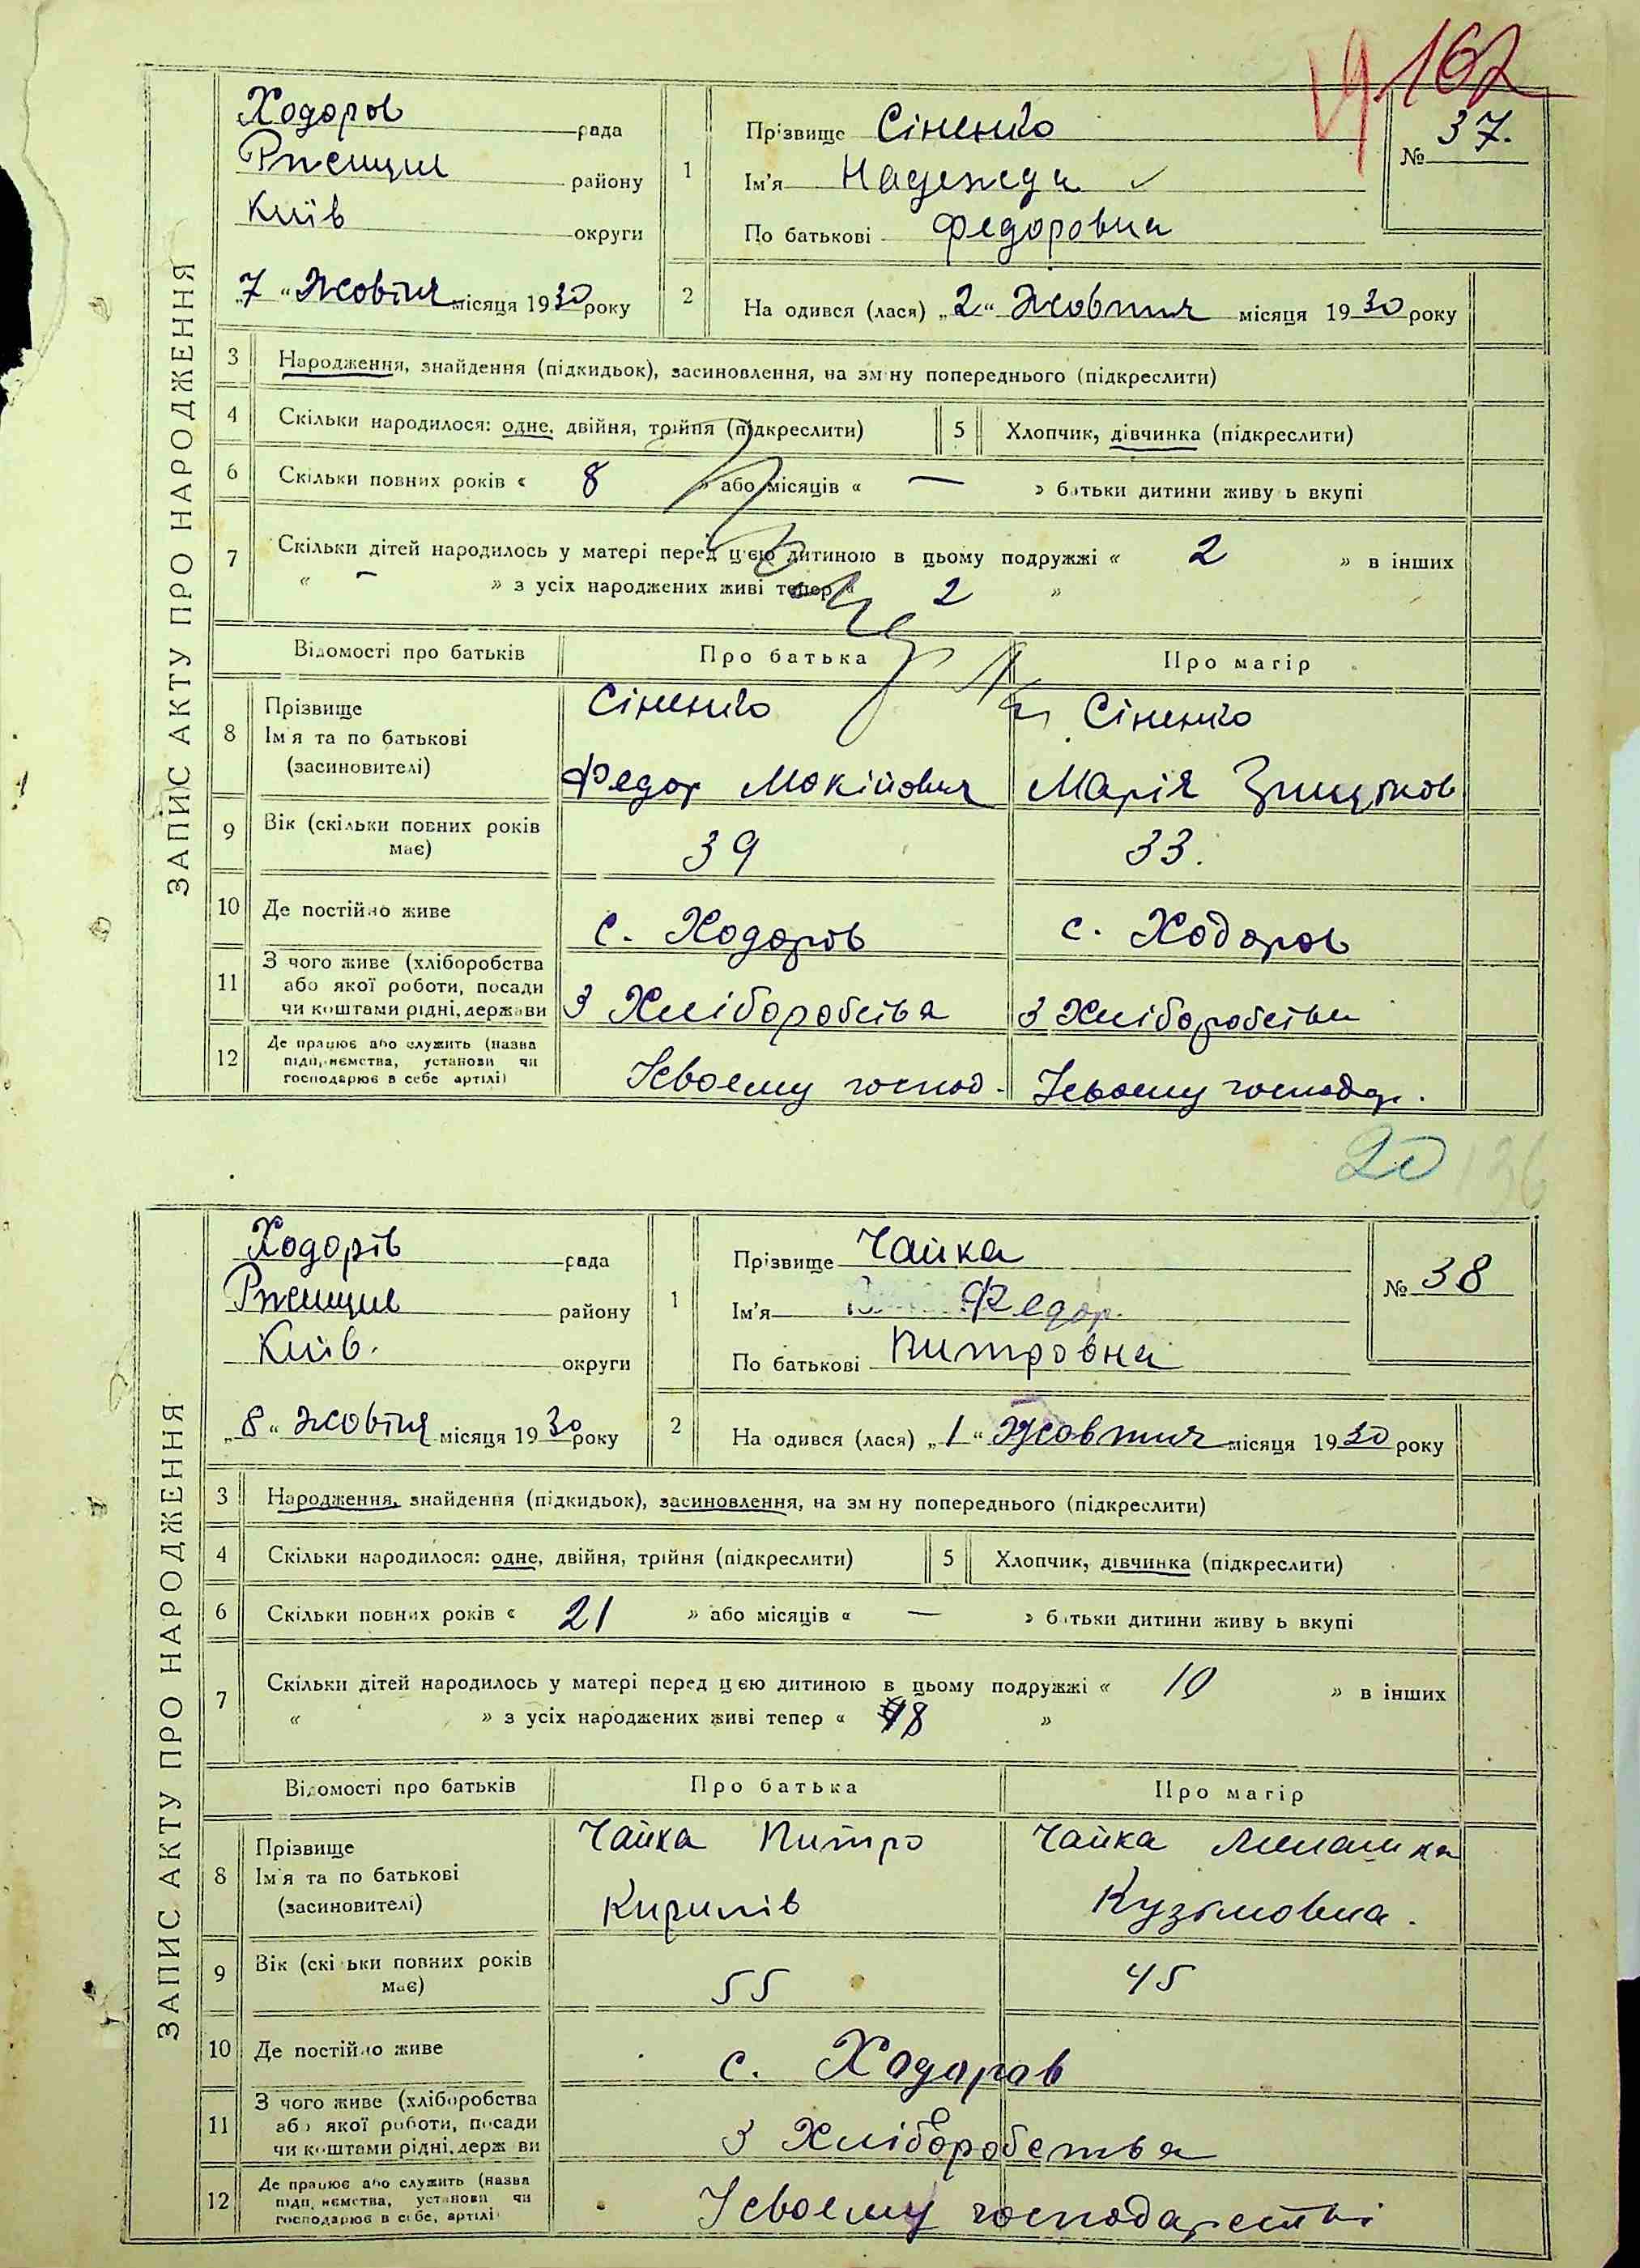 162
ЗАПИС АКТУ ПРО НАРОДЖЕННЯ
Ходоров рада
Ржищив району
Київ округи
„7“ Жовтня місяця 1930 року
1
Прізвище Сіненко
Ім'я Надежда
По батькові Федоровна
№ 37.
2 На одився (лася) „2“ Жовтня місяця 1930 року
3 Народження, знайдення (підкидьок), засиновлення, на зм ну попереднього (підкреслити)
4 Скільки народилося: одне, двійня, трійня (підкреслити) 5 Хлопчик, дівчинка (підкреслити)
6 Скільки повних років « 8 » або місяців « — » батьки дитини живу ь вкупі
7 Скільки дітей народилось у матері перед цією дитиною в цьому подружжі « 2 » в інших
« - » з усіх народжених живі тепер « 2 »
Відомості про батьків Про батька Про матір
8 Прізвище Ім'я та по батькові (засиновителі)
Сіненко Сіненко
Федор Мокійович Марія
9 Вік (скільки повних років має) 39 33.
10 Де постійно живе с. Ходоров с. Ходоров
11 З чого живе (хліборобства або якої роботи, посади чи коштами рідні, держави
З Хліборобства З Хліборобства
12 Де працює або служить (назва підприємства, установи чи господарює в себе артілі)
Усвоему господ. Усвоему господар.
20 136
ЗАПИС АКТУ ПРО НАРОДЖЕННЯ
Ходорів рада
Ржищив району
Київ. округи
„8“ Жовтня місяця 1930 року
1
Прізвище Чайка
Ім'я Федор.
По батькові Питровна
№ 38
2 На одився (лася) „1“ Жовтня місяця 1930 року
3 Народження, знайдення (підкидьок), засиновлення, на зм ну попереднього (підкреслити)
4 Скільки народилося: одне, двійня, трійня (підкреслити) 5 Хлопчик, дівчинка (підкреслити)
6 Скільки повних років « 21 » або місяців « — » батьки дитини живу ь вкупі
7 Скільки дітей народилось у матері перед цією дитиною в цьому подружжі « 10 » в інших
« » з усіх народжених живі тепер « 8 »
Відомості про батьків Про батька Про матір
8 Прізвище Ім'я та по батькові (засиновителі)
Чайка Питро Чайка Милашка
Кирилів Кузьмовна.
9 Вік (скільки повних років має) 55 45
10 Де постійно живе с. Ходоров
11 З чого живе (хліборобства або якої роботи, посади чи коштами рідні, держ ви
З Хліборобства
12 Де працює або служить (назва підприємства, установи чи господарює в себе, артілі
Усвоему господарстві